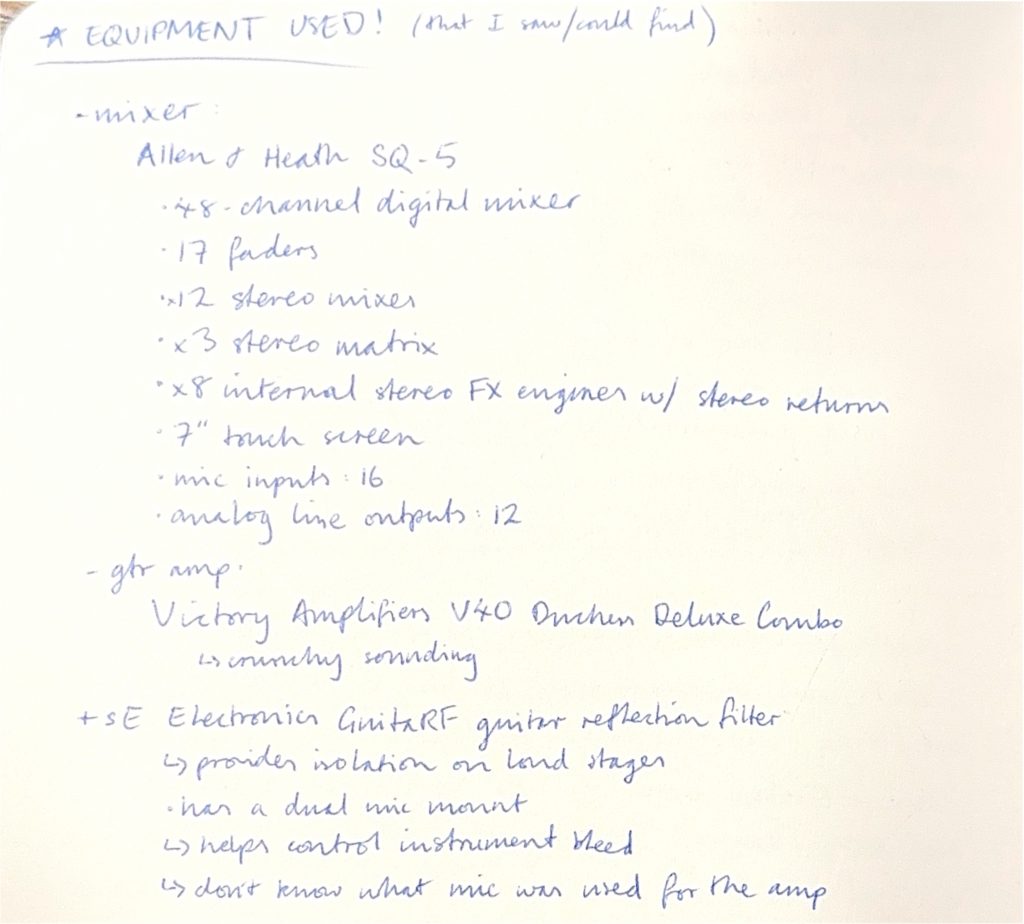 * EQUIPMENT USED! (that I saw/could find)
- mixer:
Allen & Heath SQ-5
· 48-channel digital mixer
· 17 faders
· x12 stereo mixes
· x3 stereo matrix
· x8 internal stereo FX engines w/ stereo returns
· 7" touch screen
· mic inputs: 16
· analog line outputs: 12
- gtr amp:
Victory Amplifiers V40 Duchess Deluxe Combo
↳ crunchy sounding
+ sE Electronics GuitaRF guitar reflection filter
↳ provides isolation on loud stages
· has a dual mic mount
↳ helps control instrument bleed
↳ don't know what mic was used for the amp